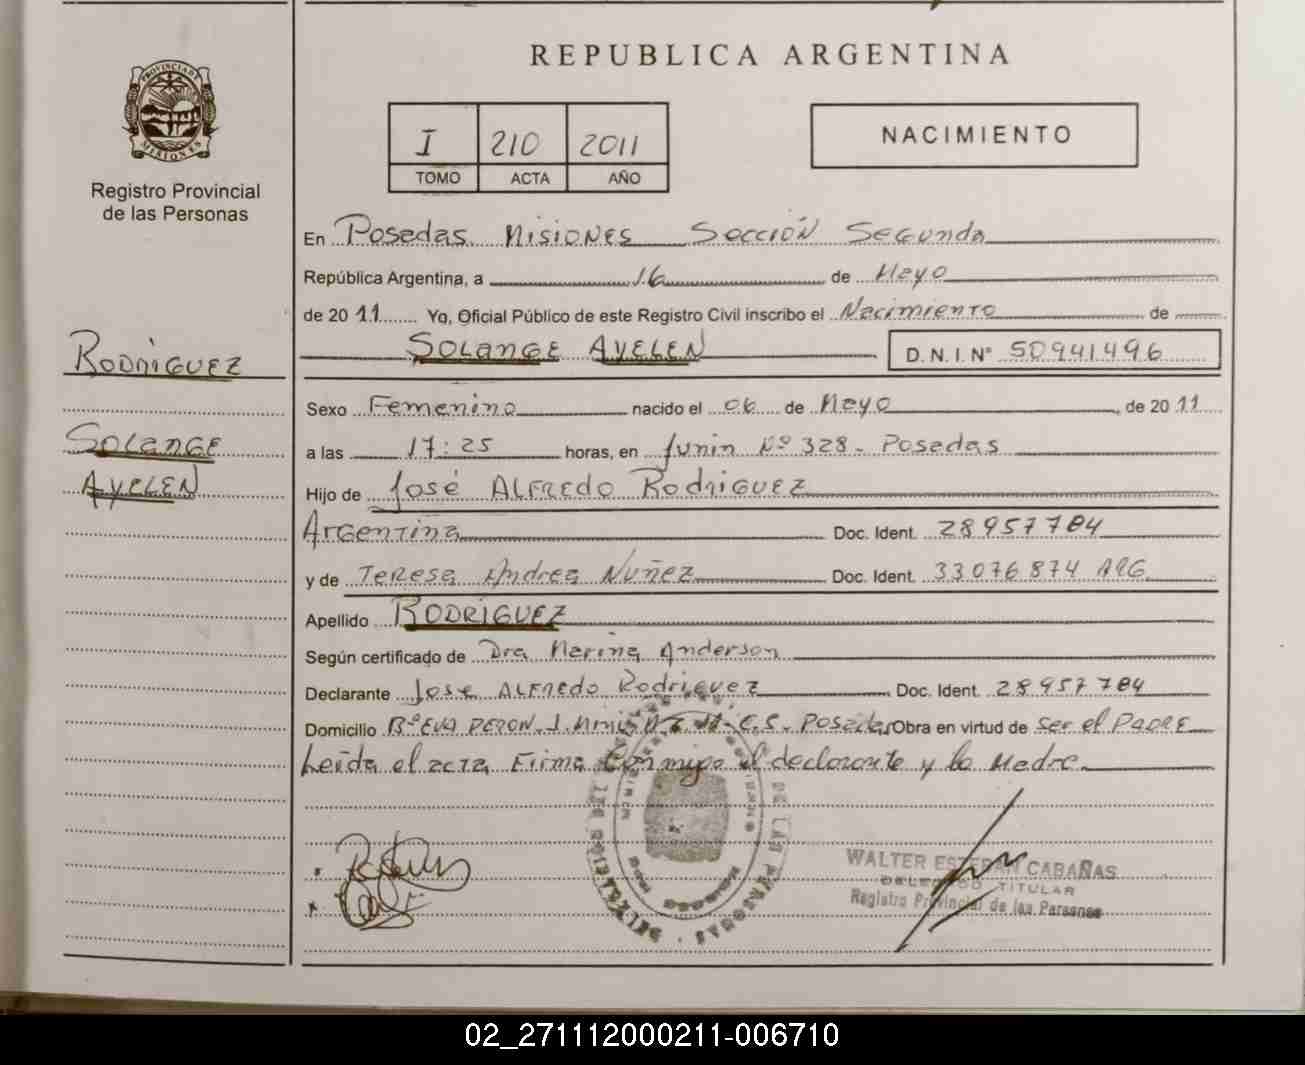 REPUBLICA ARGENTINA
PROVINCIA DE MISIONES
Registro Provincial
de las Personas
I 210 2011
TOMO ACTA AÑO
NACIMIENTO
En Posadas Misiones Sección Segunda
República Argentina, a 16 de Mayo
de 2011 Yo, Oficial Público de este Registro Civil inscribo el Nacimiento de
SOLANGE AYELEN D.N.I. Nº 50941496
RODRIGUEZ
SOLANGE
AYELEN
Sexo Femenino nacido el 06 de Mayo, de 2011
a las 17:25 horas, en Junin Nº 328 - Posadas
Hijo de José ALFREDO RodriGUEZ
Argentina Doc. Ident. 28957784
y de Teresa Andrea Nuñez Doc. Ident. 33076874 ARG
Apellido RODRIGUEZ
Según certificado de Dra Marina Anderson
Declarante José ALFREDO Rodriguez Doc. Ident. 28957784
Domicilio Bº EVA PERON C.S. - Posadas Obra en virtud de ser el PADRE
Leída el acta Firma Conmigo el declarante y la Madre
WALTER ESTEBAN CABAÑAS
DELEGADO TITULAR
Registro Provincial de las Personas
DE LAS PERSONAS
02_271112000211-006710